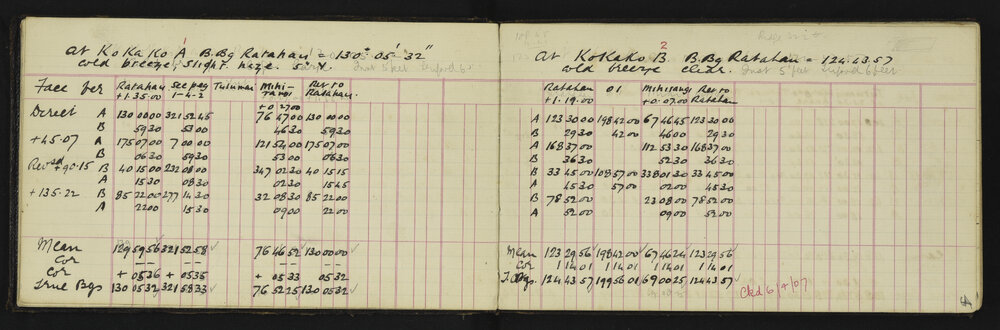 At KoKaKo A B.Bg Ratahan = 130° 05' 32"
cold breeze, slight haze.
Face ber Ratahan See peg Mihi- Ret to
+1.35.00 1-4-2 rangi Ratahan.
+0 27.00
Direct A 130 00 00 321 52 45 76 47 00 130 00 00
B 59 30 53 00 46 30 59 30
+45.07 A 175 07 00 7 00 00 121 54 00 175 07 00
B 06 30 59 30 53 00 06 30
Revsd +90.15 B 40 15 00 232 08 00 347 02 30 40 15 15
A 15 30 08 30 02 30 15 45
+135.22 B 85 22 00 277 14 30 32 08 30 85 22 00
A 22 00 15 30 09 00 22 00
Mean 129 59 56 321 52 58 76 46 52 130 00 00
Cor — — — — — —
Cor + 05 36 + 05 35 + 05 33 05 32
True Bgs 130 05 32 321 58 33 76 52 25 130 05 32
2
At KoKaKo B. B.Bg Ratahan = 124.43.57
cold breeze clear. Inst 5 feet
Ratahan 01 Mihirangi Ret to
+1.19.00 +0.07.00 Ratahan
A 123 30 00 198 42 00 67 46 45 123 30 00
B 29 30 42 00 46 00 29 30
A 168 37 00 112 53 30 168 37 00
B 36 30 52 30 36 30
B 33 45 00 108 57 00 338 01 30 33 45 00
A 45 30 57 00 02 00 45 30
B 78 52 00 23 08 00 78 52 00
A 52 00 09 00 52 00
Mean 123 29 56 198 42 00 67 46 24 123 29 56
Cor 1 14 01 1 14 01 1 14 01 1 14 01
T. Bgs. 124 43 57 199 56 01 69 00 25 124 43 57
Ckd 6/4/07